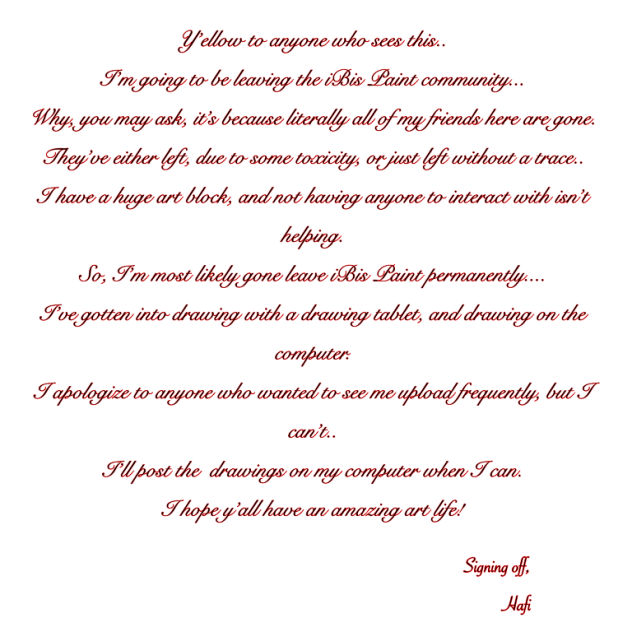 Y'ellow to anyone who sees this..
I'm going to be leaving the iBis Paint community...
Why, you may ask, it's because literally all of my friends here are gone.
They've either left, due to some toxicity, or just left without a trace..
I have a huge art block, and not having anyone to interact with isn't
helping.
So, I'm most likely gone leave iBis Paint permanently....
I've gotten into drawing with a drawing tablet, and drawing on the
computer.
I apologize to anyone who wanted to see me upload frequently, but I
can't..
I'll post the  drawings on my computer when I can.
I hope y'all have an amazing art life!
Signing off,
Hafi